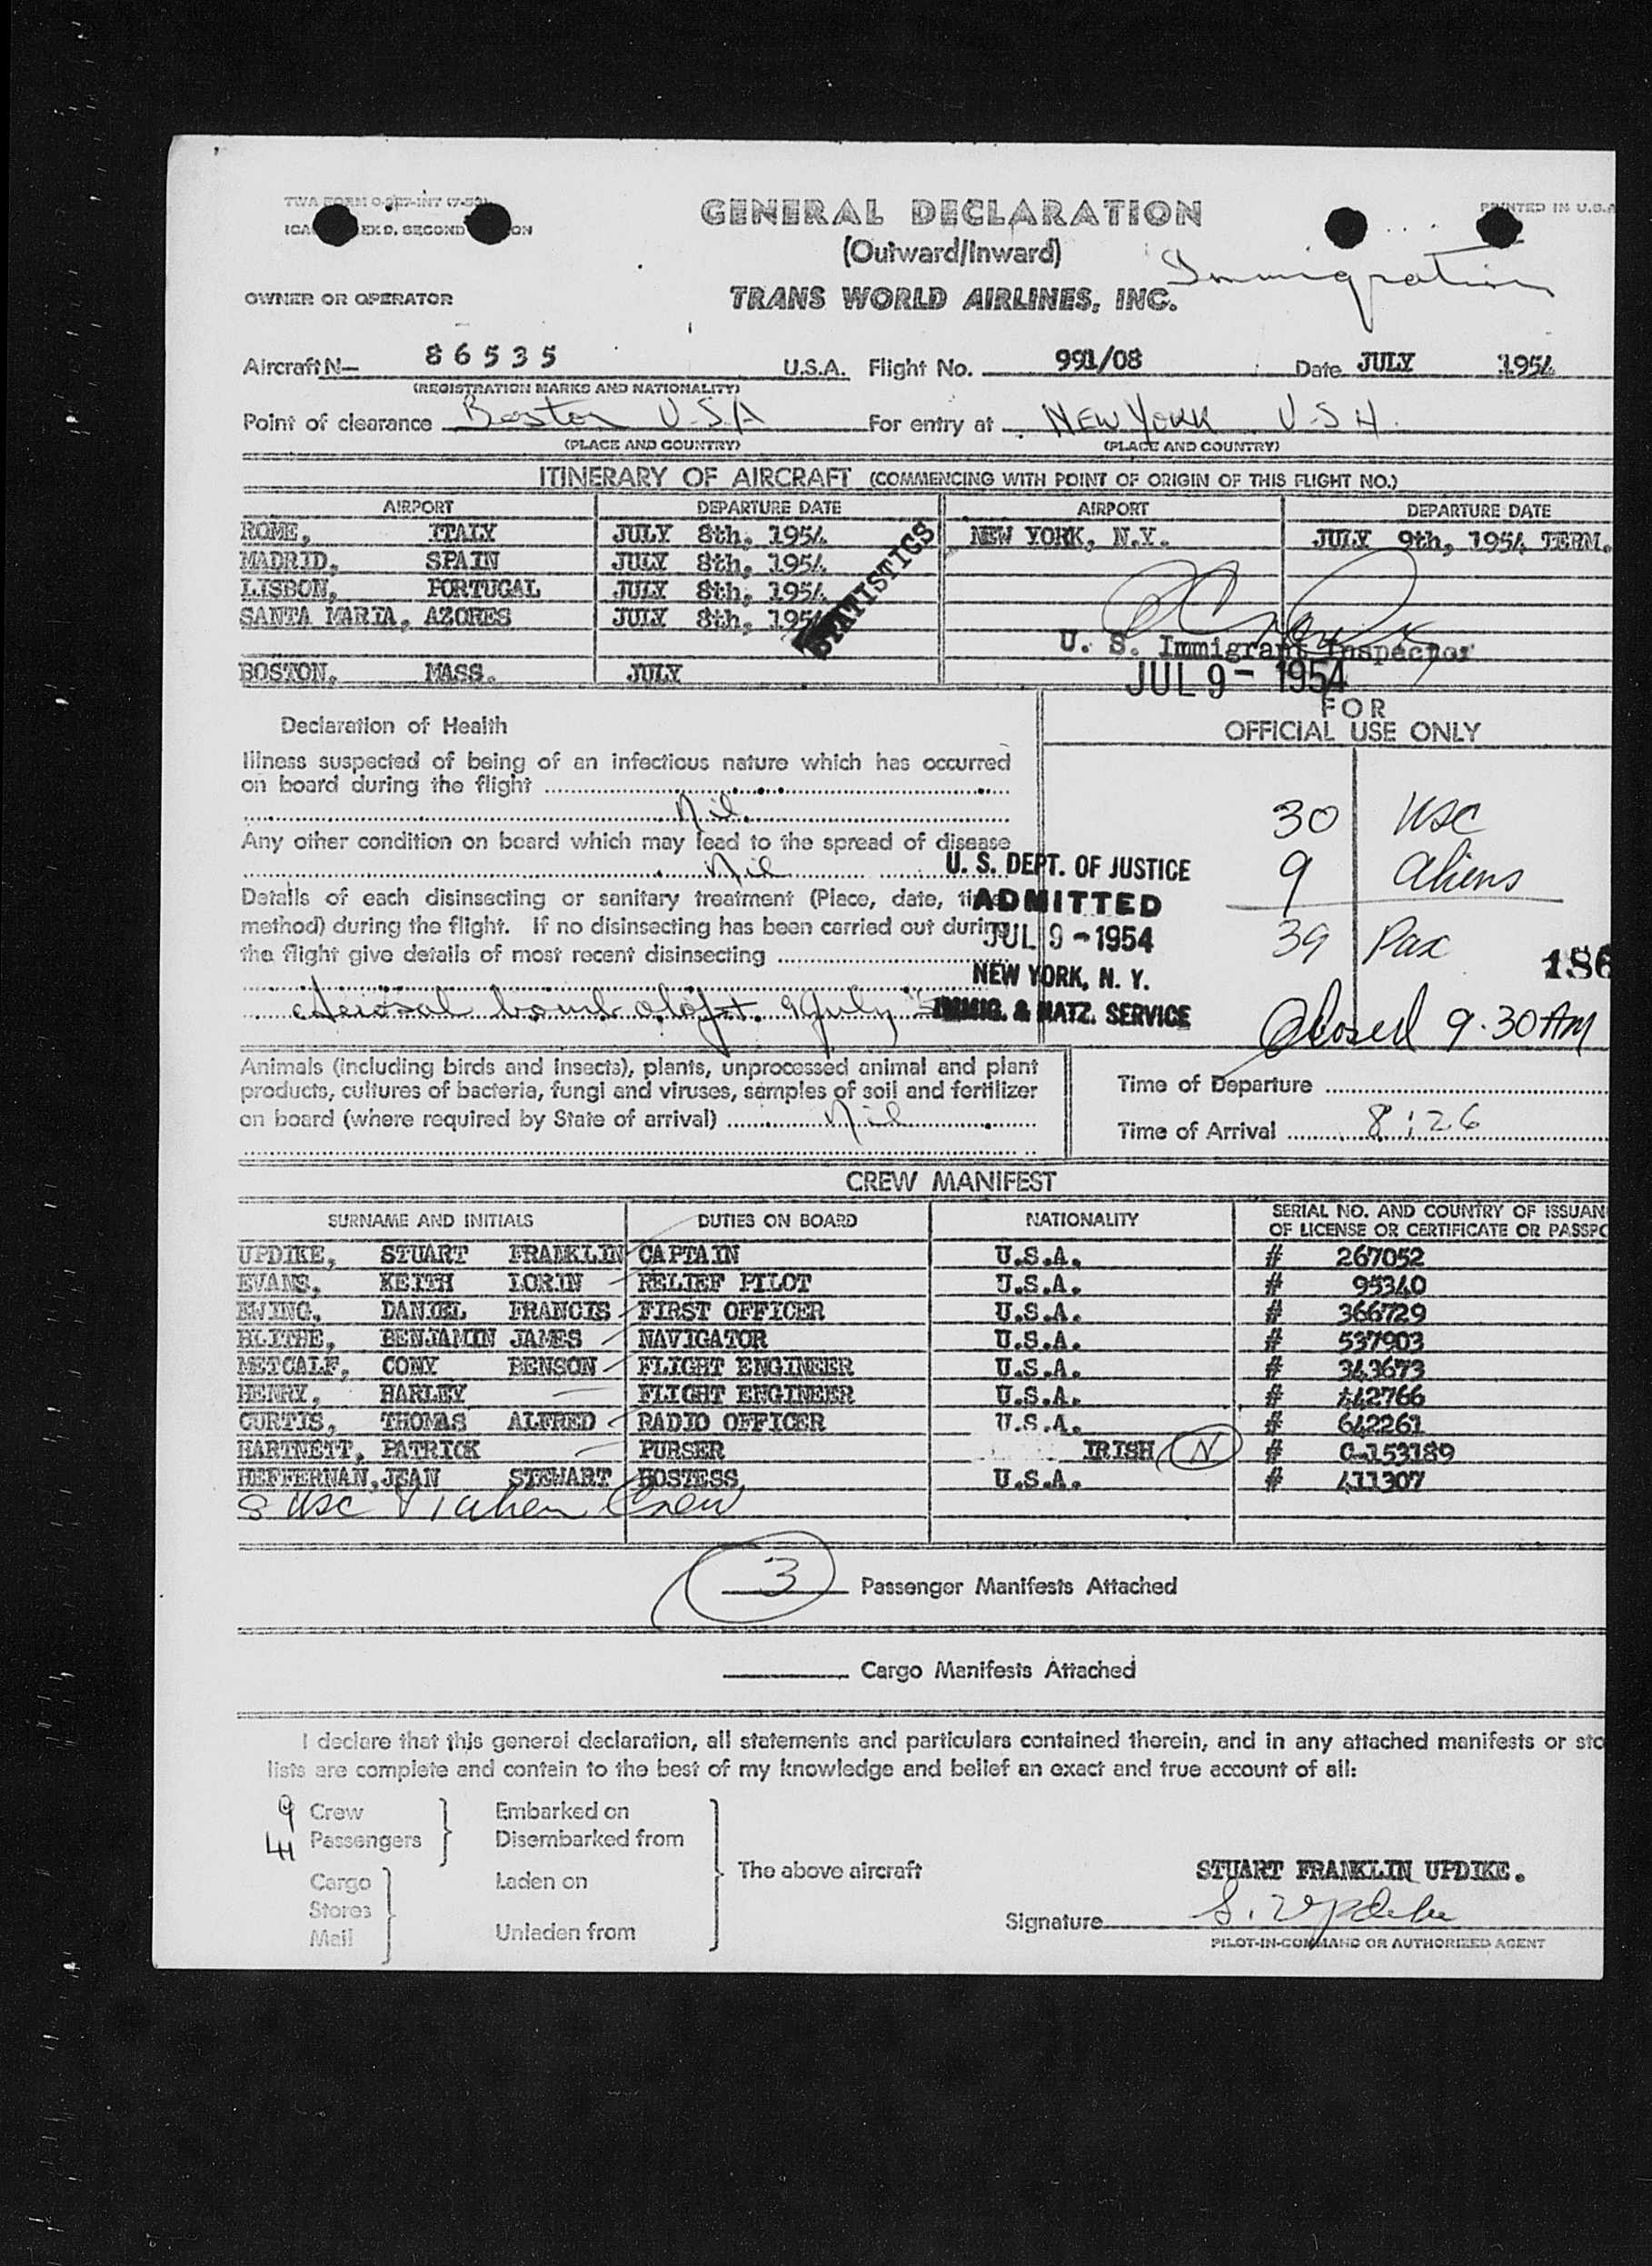 TWA FORM O-      -INT (7-5
GENERAL DECLARATION
PRINTED IN U.S.A
ICA      EX 9, SECOND      ON
(Outward/Inward)
Immigration
OWNER OR OPERATOR
TRANS WORLD AIRLINES, INC.
Aircraft N— 86535 U.S.A. Flight No. 991/08 Date JULY 1954
(REGISTRATION MARKS AND NATIONALITY)
Point of clearance Boston U.S.A For entry at NEW YORK U S A.
(PLACE AND COUNTRY) (PLACE AND COUNTRY)
ITINERARY OF AIRCRAFT (COMMENCING WITH POINT OF ORIGIN OF THIS FLIGHT NO.)
AIRPORT DEPARTURE DATE AIRPORT DEPARTURE DATE
ROME, ITALY JULY 8th, 1954 NEW YORK, N.Y. JULY 9th, 1954 TERM.
MADRID, SPAIN JULY 8th, 1954
LISBON, PORTUGAL JULY 8th, 1954
SANTA MARIA, AZORES JULY 8th, 1954
STATISTICS
U. S. Immigrant Inspector
BOSTON, MASS. JULY
JUL 9 - 1954
FOR
OFFICIAL USE ONLY
Declaration of Health
Illness suspected of being of an infectious nature which has occurred
on board during the flight
Nil
30 USC
Any other condition on board which may lead to the spread of disease
Nil
9 Aliens
U. S. DEPT. OF JUSTICE
ADMITTED
JUL 9 - 1954
NEW YORK, N. Y.
IMMIG. & NATZ. SERVICE
Details of each disinsecting or sanitary treatment (Place, date, time
method) during the flight. If no disinsecting has been carried out during
the flight give details of most recent disinsecting
39 Pax
186
Aerosol bomb aloft 9 July
Closed 9.30 AM
Animals (including birds and insects), plants, unprocessed animal and plant
products, cultures of bacteria, fungi and viruses, samples of soil and fertilizer
on board (where required by State of arrival) Nil
Time of Departure
Time of Arrival 8:26
CREW MANIFEST
SURNAME AND INITIALS DUTIES ON BOARD NATIONALITY SERIAL NO. AND COUNTRY OF ISSUAN
OF LICENSE OR CERTIFICATE OR PASSPO
UPDIKE, STUART FRANKLIN CAPTAIN U.S.A. # 267052
EVANS, KEITH LORIN RELIEF PILOT U.S.A. # 95340
EWING, DANIEL FRANCIS FIRST OFFICER U.S.A. # 366729
BLITHE, BENJAMIN JAMES NAVIGATOR U.S.A. # 537903
METCALF, CONY BENSON FLIGHT ENGINEER U.S.A. # 343673
HENRY, HARLEY FLIGHT ENGINEER U.S.A. # 442766
CURTIS, THOMAS ALFRED RADIO OFFICER U.S.A. # 642261
HARTNETT, PATRICK PURSER IRISH N # C-153189
HEFFERNAN, JEAN STEWART HOSTESS U.S.A. # 411307
8 USC & 1 alien Crew
3 Passenger Manifests Attached
Cargo Manifests Attached
I declare that this general declaration, all statements and particulars contained therein, and in any attached manifests or sto
lists are complete and contain to the best of my knowledge and belief an exact and true account of all:
9 Crew Embarked on
41 Passengers Disembarked from
The above aircraft
Cargo Laden on
Stores
Mail Unladen from
STUART FRANKLIN UPDIKE.
Signature S. Updike
PILOT-IN-COMMAND OR AUTHORIZED AGENT